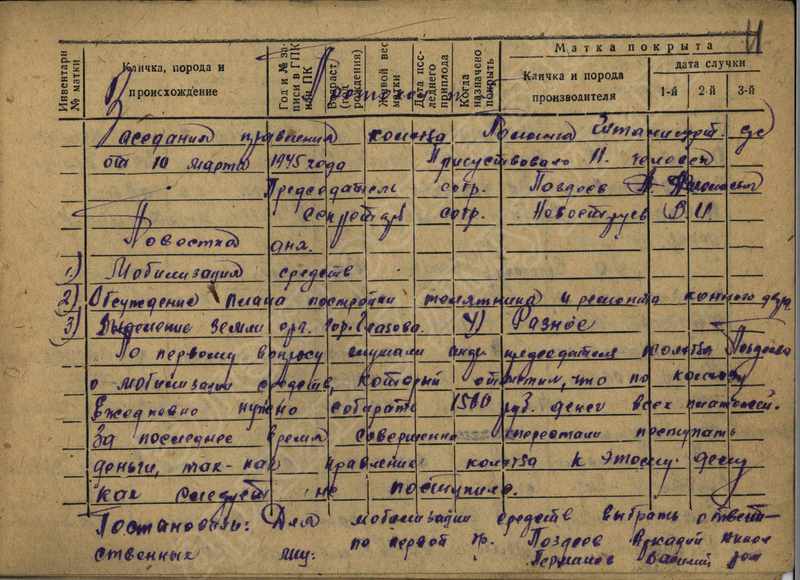 11
Инвентарн. № матки
Кличка, порода и происхождение
Год и № записи в ГПК или ПК
Возраст (год рождения)
Живой вес матки
Дата последнего приплода
Когда назначено покрыть
Матка покрыта
Кличка и порода производителя
дата случки
1-й 2-й 3-й
Протокол
Заседания правления колхоза
от 10 марта 1945 года Присутствовало 11 человек
Председатель сотр. Поздеев
Секретарь сотр. Новоструев В И
Повостка дня.
1) Мобилизация средств
2) Обсуждение плана постройки телятника и ремонта конного двора
3) Выделение земли орг. гор. Глазова. 4) Разное
По первому вопросу слушали председателя колхоза Поздеева
о мобилизации средств, который отметил, что по колхозу
Ежедневно нужно собирать 1500 руб. денег всех платежей.
За последнее время совершенно перестали поступать
деньги, так-как правление колхоза к этому делу
как следует не поступило.
Постановили: Для мобилизации средств выбрать ответ-
ственных лиц: по первой бр. Поздеев Аркадий
Германов Василий